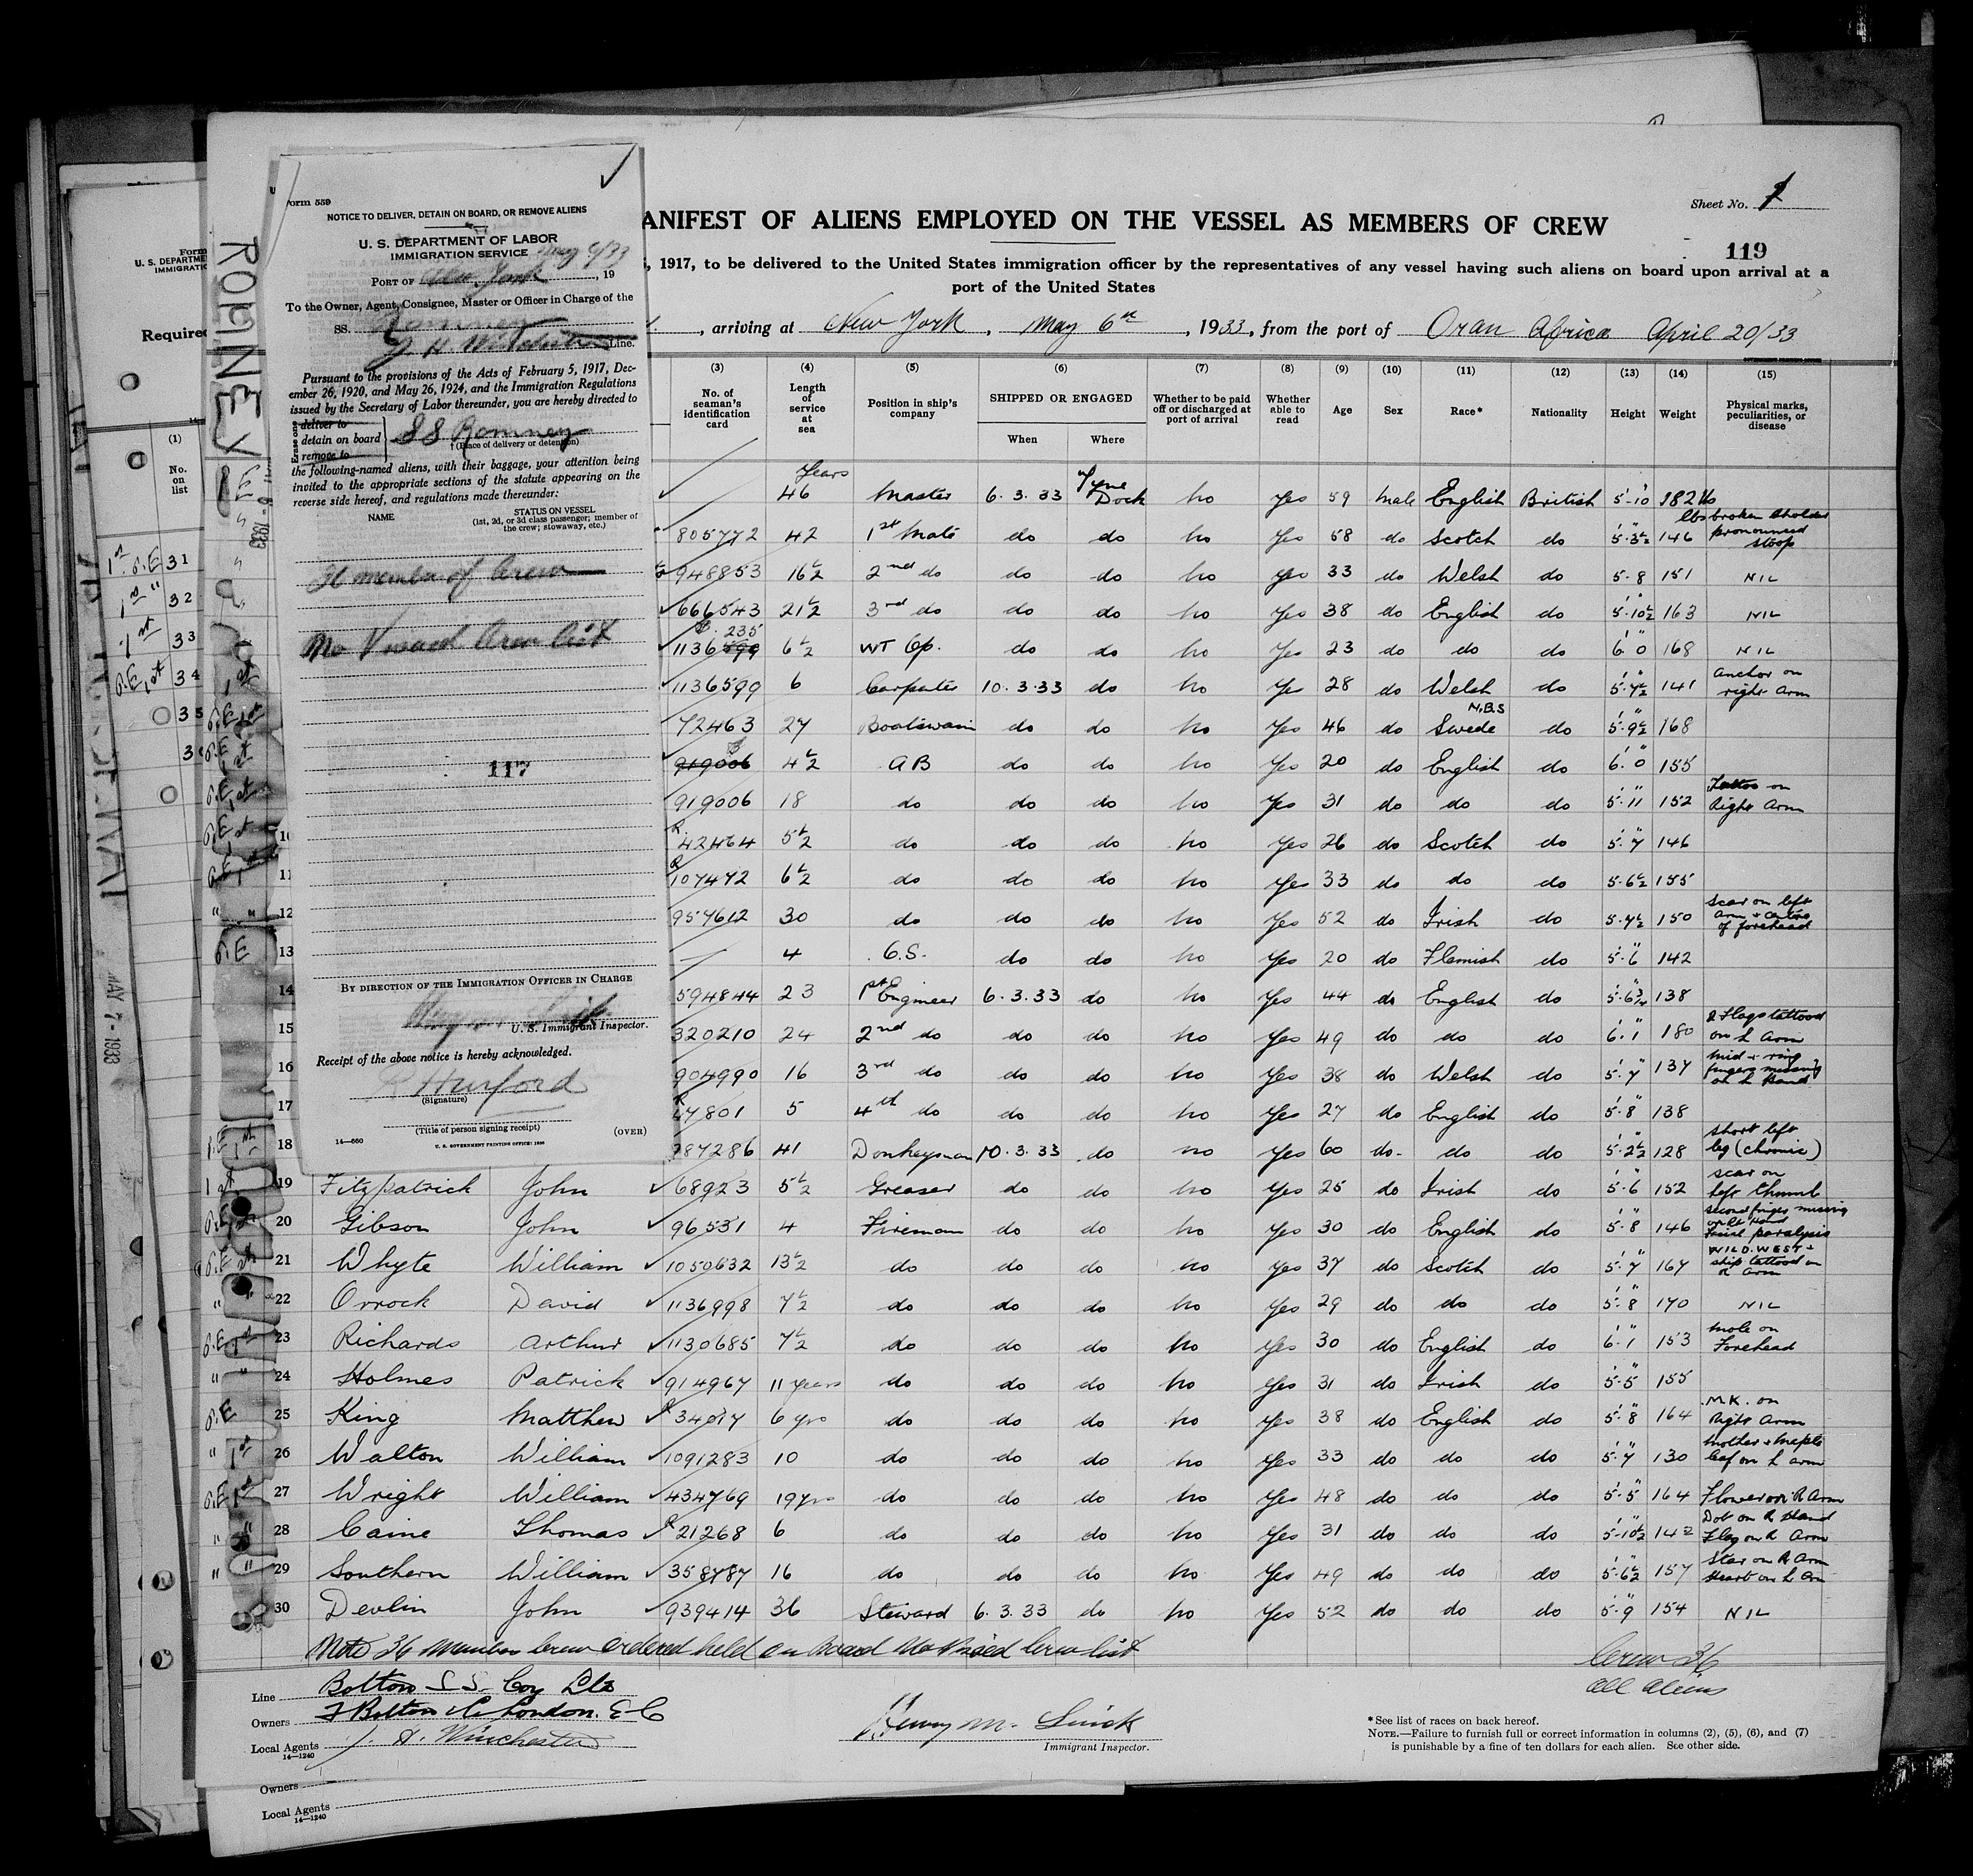 Sheet No. 1
MANIFEST OF ALIENS EMPLOYED ON THE VESSEL AS MEMBERS OF CREW
119
, 1917, to be delivered to the United States immigration officer by the representatives of any vessel having such aliens on board upon arrival at a
port of the United States
, arriving at New York, May 6th, 1933, from the port of Oran Africa April 20/33
Form 559
NOTICE TO DELIVER, DETAIN ON BOARD, OR REMOVE ALIENS
U. S. DEPARTMENT OF LABOR
IMMIGRATION SERVICE
PORT OF New York, 19
To the Owner, Agent, Consignee, Master or Officer in Charge of the
SS. Romney
J. H. Winchester Line.
Pursuant to the provisions of the Acts of February 5, 1917, Dec-
ember 26, 1920, and May 26, 1924, and the Immigration Regulations
issued by the Secretary of Labor thereunder, you are hereby directed to
Erase one
deliver to
detain on board SS Romney
remove to † (Place of delivery or detention)
the following-named aliens, with their baggage, your attention being
invited to the appropriate sections of the statute appearing on the
reverse side hereof, and regulations made thereunder:
NAME STATUS ON VESSEL
(1st, 2d, or 3d class passenger; member of
the crew; stowaway, etc.)
36 member of Crew
No Visaed Crew List
117
BY DIRECTION OF THE IMMIGRATION OFFICER IN CHARGE
U. S. Immigrant Inspector.
Receipt of the above notice is hereby acknowledged.
(Signature)
(Title of person signing receipt)
(OVER)
14—660 U. S. GOVERNMENT PRINTING OFFICE: 1930
ROMNEY
(3) (4) (5) (6) (7) (8) (9) (10) (11) (12) (13) (14) (15)
No. of seaman's identification card Length of service at sea Position in ship's company SHIPPED OR ENGAGED When Where Whether to be paid off or discharged at port of arrival Whether able to read Age Sex Race* Nationality Height Weight Physical marks, peculiarities, or disease
Years 46 Master 6.3.33 Tyne Dock no yes 59 male English British 5-10 182 lbs
805772 42 1st Mate do do no yes 58 do Scotch do 5-3½ 146 broken sholder pronounced stoop
948853 16½ 2nd do do do no yes 33 do Welsh do 5-8 151 NIL
666543 21½ 3rd do do do no yes 38 do English do 5-10½ 163 NIL
1136 235 6½ WT Op. do do no yes 23 do do do 6-0 168 NIL
1136599 6 Carpenter 10.3.33 do no yes 28 do Welsh do 5-7½ 141 anchor on right arm
72463 27 Boatswain do do no yes 46 do N.B.S Swede do 5-9½ 168
919006 4½ AB do do no yes 20 do English do 6-0 155
919006 18 do do do no yes 31 do do do 5-11 152 Tattoo on Right Arm
10 R 42464 5½ do do do no yes 26 do Scotch do 5-7 146
11 R 107472 6½ do do do no yes 33 do do do 5-6½ 155
12 957612 30 do do do no yes 52 do Irish do 5-7½ 150 scar on left arm + centre of forehead
13 4 O.S. do do no yes 20 do Flemish do 5-6 142
14 594844 23 1st Engineer 6.3.33 do no yes 44 do English do 5-6¾ 138
15 320210 24 2nd do do do no yes 49 do do do 6-1 180 2 Flags tattood on L arm
16 904990 16 3rd do do do no yes 38 do Welsh do 5-7 137 mid + ring fingers missing on L Hand
17 R 47801 5 4th do do do no yes 27 do English do 5-8 138
18 387286 41 Donkeyman 10.3.33 do no yes 60 do do do 5-2½ 128 short left leg (chronic)
19 Fitzpatrick John 68923 5½ Greaser do do no yes 25 do Irish do 5-6 152 scar on left thumb
20 Gibson John 96531 4 Fireman do do no yes 30 do English do 5-8 146 second finger missing on Rt Hand paralysis
21 Whyte William 1050632 13½ do do do no yes 37 do Scotch do 5-7 167 WILD. WEST + ship tattood on R arm
22 Orrock David 1136998 7½ do do do no yes 29 do do do 5-8 170 NIL
23 Richards Arthur 1130685 7½ do do do no yes 30 do English do 6-1 153 mole on Forehead
24 Holmes Patrick 914967 11 years do do do no yes 31 do Irish do 5-5 155
25 King Matthew R 34017 6 yrs do do do no yes 38 do English do 5-8 164 M.K. on Right Arm
26 Walton William 1091283 10 do do do no yes 33 do do do 5-7 130 mother + maple leaf on L arm
27 Wright William 434769 19 yrs do do do no yes 48 do do do 5-5 164 Flower on R Arm
28 Caine Thomas R 21268 6 do do do no yes 31 do do do 5-10½ 142 Dot on R Hand Flag on R Arm
29 Southern William 358787 16 do do do no yes 49 do do do 5-6½ 157 Star on R Arm Heart on L Arm
30 Devlin John 939414 36 Steward 6.3.33 do no yes 52 do do do 5-9 154 NIL
Note 36 members crew ordered held on board No Visaed Crew list
Crew 36
All Aliens
Line Bolton S.S. Coy Ltd
Owners F Bolton & Co London. E.C
Local Agents J. H. Winchester
14—1240
Immigrant Inspector.
*See list of races on back hereof.
NOTE.—Failure to furnish full or correct information in columns (2), (5), (6), and (7)
is punishable by a fine of ten dollars for each alien. See other side.
Owners
Local Agents
14—1240
Form
U. S. DEPARTME
IMMIGRATIO
Required
(1)
No. on list
31
32
33
34
35
MAY 7 - 1933